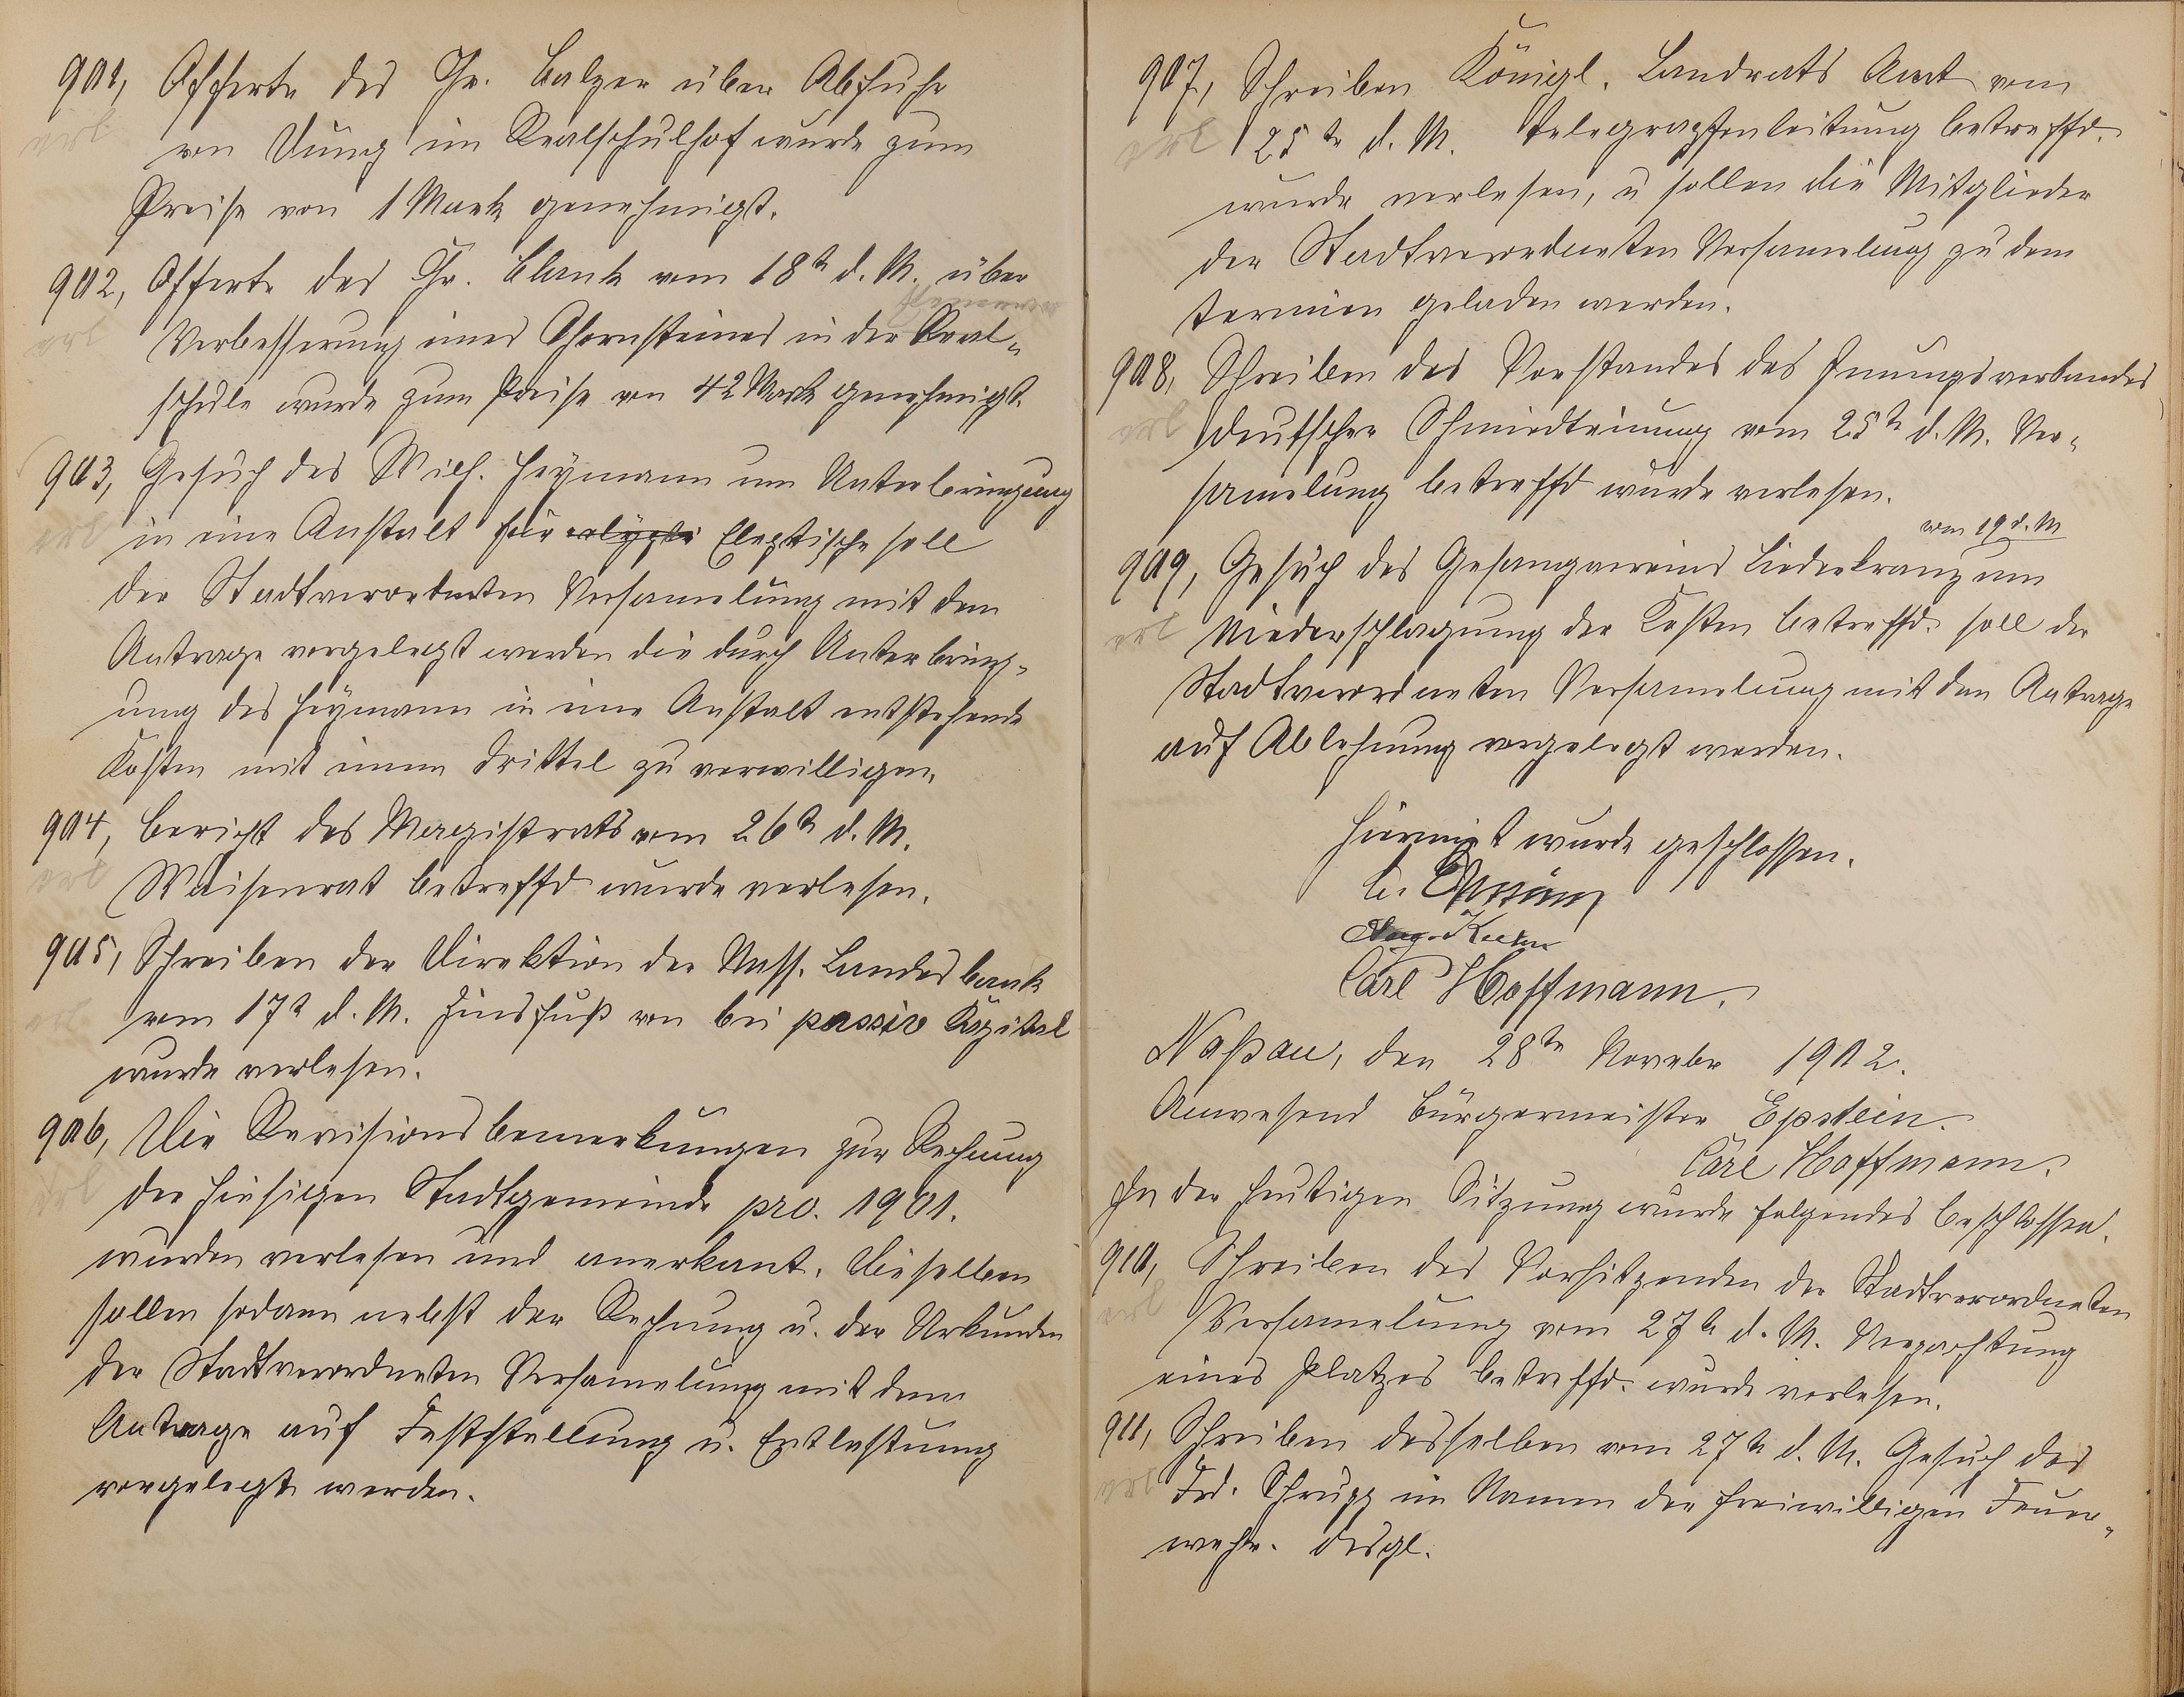 901, Offerte des Chr. Balzer über Abfuhr
erl
von Dung im Realschulhof wurde zum
Preise von 1 Mark genehmigt.
902, Offerte des Chr. Blank vom 18t d. M. über
erl
Verbesserung eines Schornsteines in der Real-
schule wurde zum Preise von 42 Mark genehmigt.
903, Gesuch des Wilh. Heymann um Unterbringung
erl
in eine Anstalt für Eleptische soll
der Stadtverordneten Versamelung mit dem
Antrage vorgelegt werden die durch Unterbring-
ung des Heymann in eine Anstalt entstehende
Kosten mit einem Drittel zu verwilligen.
904, Bericht des Magistrats vom 26t d. M.
erl
Waisenrat betreffd wurde verlesen.
905, Schreiben der Direktion der Nass. Landesbank
erl
vom 17t d. M. Zinsfuß von bei passiv Kapital
wurde verlesen.
906, Die Revisionsbemerkungen zur Rechnung
erl
der hiesigen Stadtgemeinde pro. 1901.
wurden verlesen und anerkant. Dieselben
sollen sodann nebst der Rechnung u. der Urkunden
der Stadtverordneten Versamelung mit dem
Antrage auf Feststellung u. Entlastung
vorgelegt werden.
907, Schreiben Königl. Landrats Amt vom
erl
25te d. M. Telegraphenleitung betreffd.
wurde verlesen, u sollen die Mitglieder
der Stadtverordneten Versamelung zu dem
Termien geladen werden.
908, Schreiben des Vorstandes des Innungsverbandes
erl
deutscher Schmiedeinung vom 25t d. M. Ver-
samelung betreffd wurde verlesen.
vom 19 d. M
909, Gesuch des Gesangvereins Liederkranz um
erl
Niederschlagung der Kosten betreffd. soll der
Stadtverordneten Versamelung mit den Antrage
auf Ablehnung vorgelegt werden.
Hiermit wurde geschlossen.
Aug.
Carl Hoffmann.
Naßau, den 28te Novebr 1902.
Anwesend Bürgermeister Epstein.
Carl Hoffmann.
In der heutigen Sitzung wurde folgendes beschlossen.
910, Schreiben des Vorsitzenden der Stadtverordneten
erl
Versamelung vom 27t d. M. Verpachtung
eines Platzes betreffd. wurde verlesen.
911, Schreiben desselben vom 27t d. M. Gesuch des
erl
Frd. Schrupp im Namen der freiwilligen Feuer-
wehr. desgl.